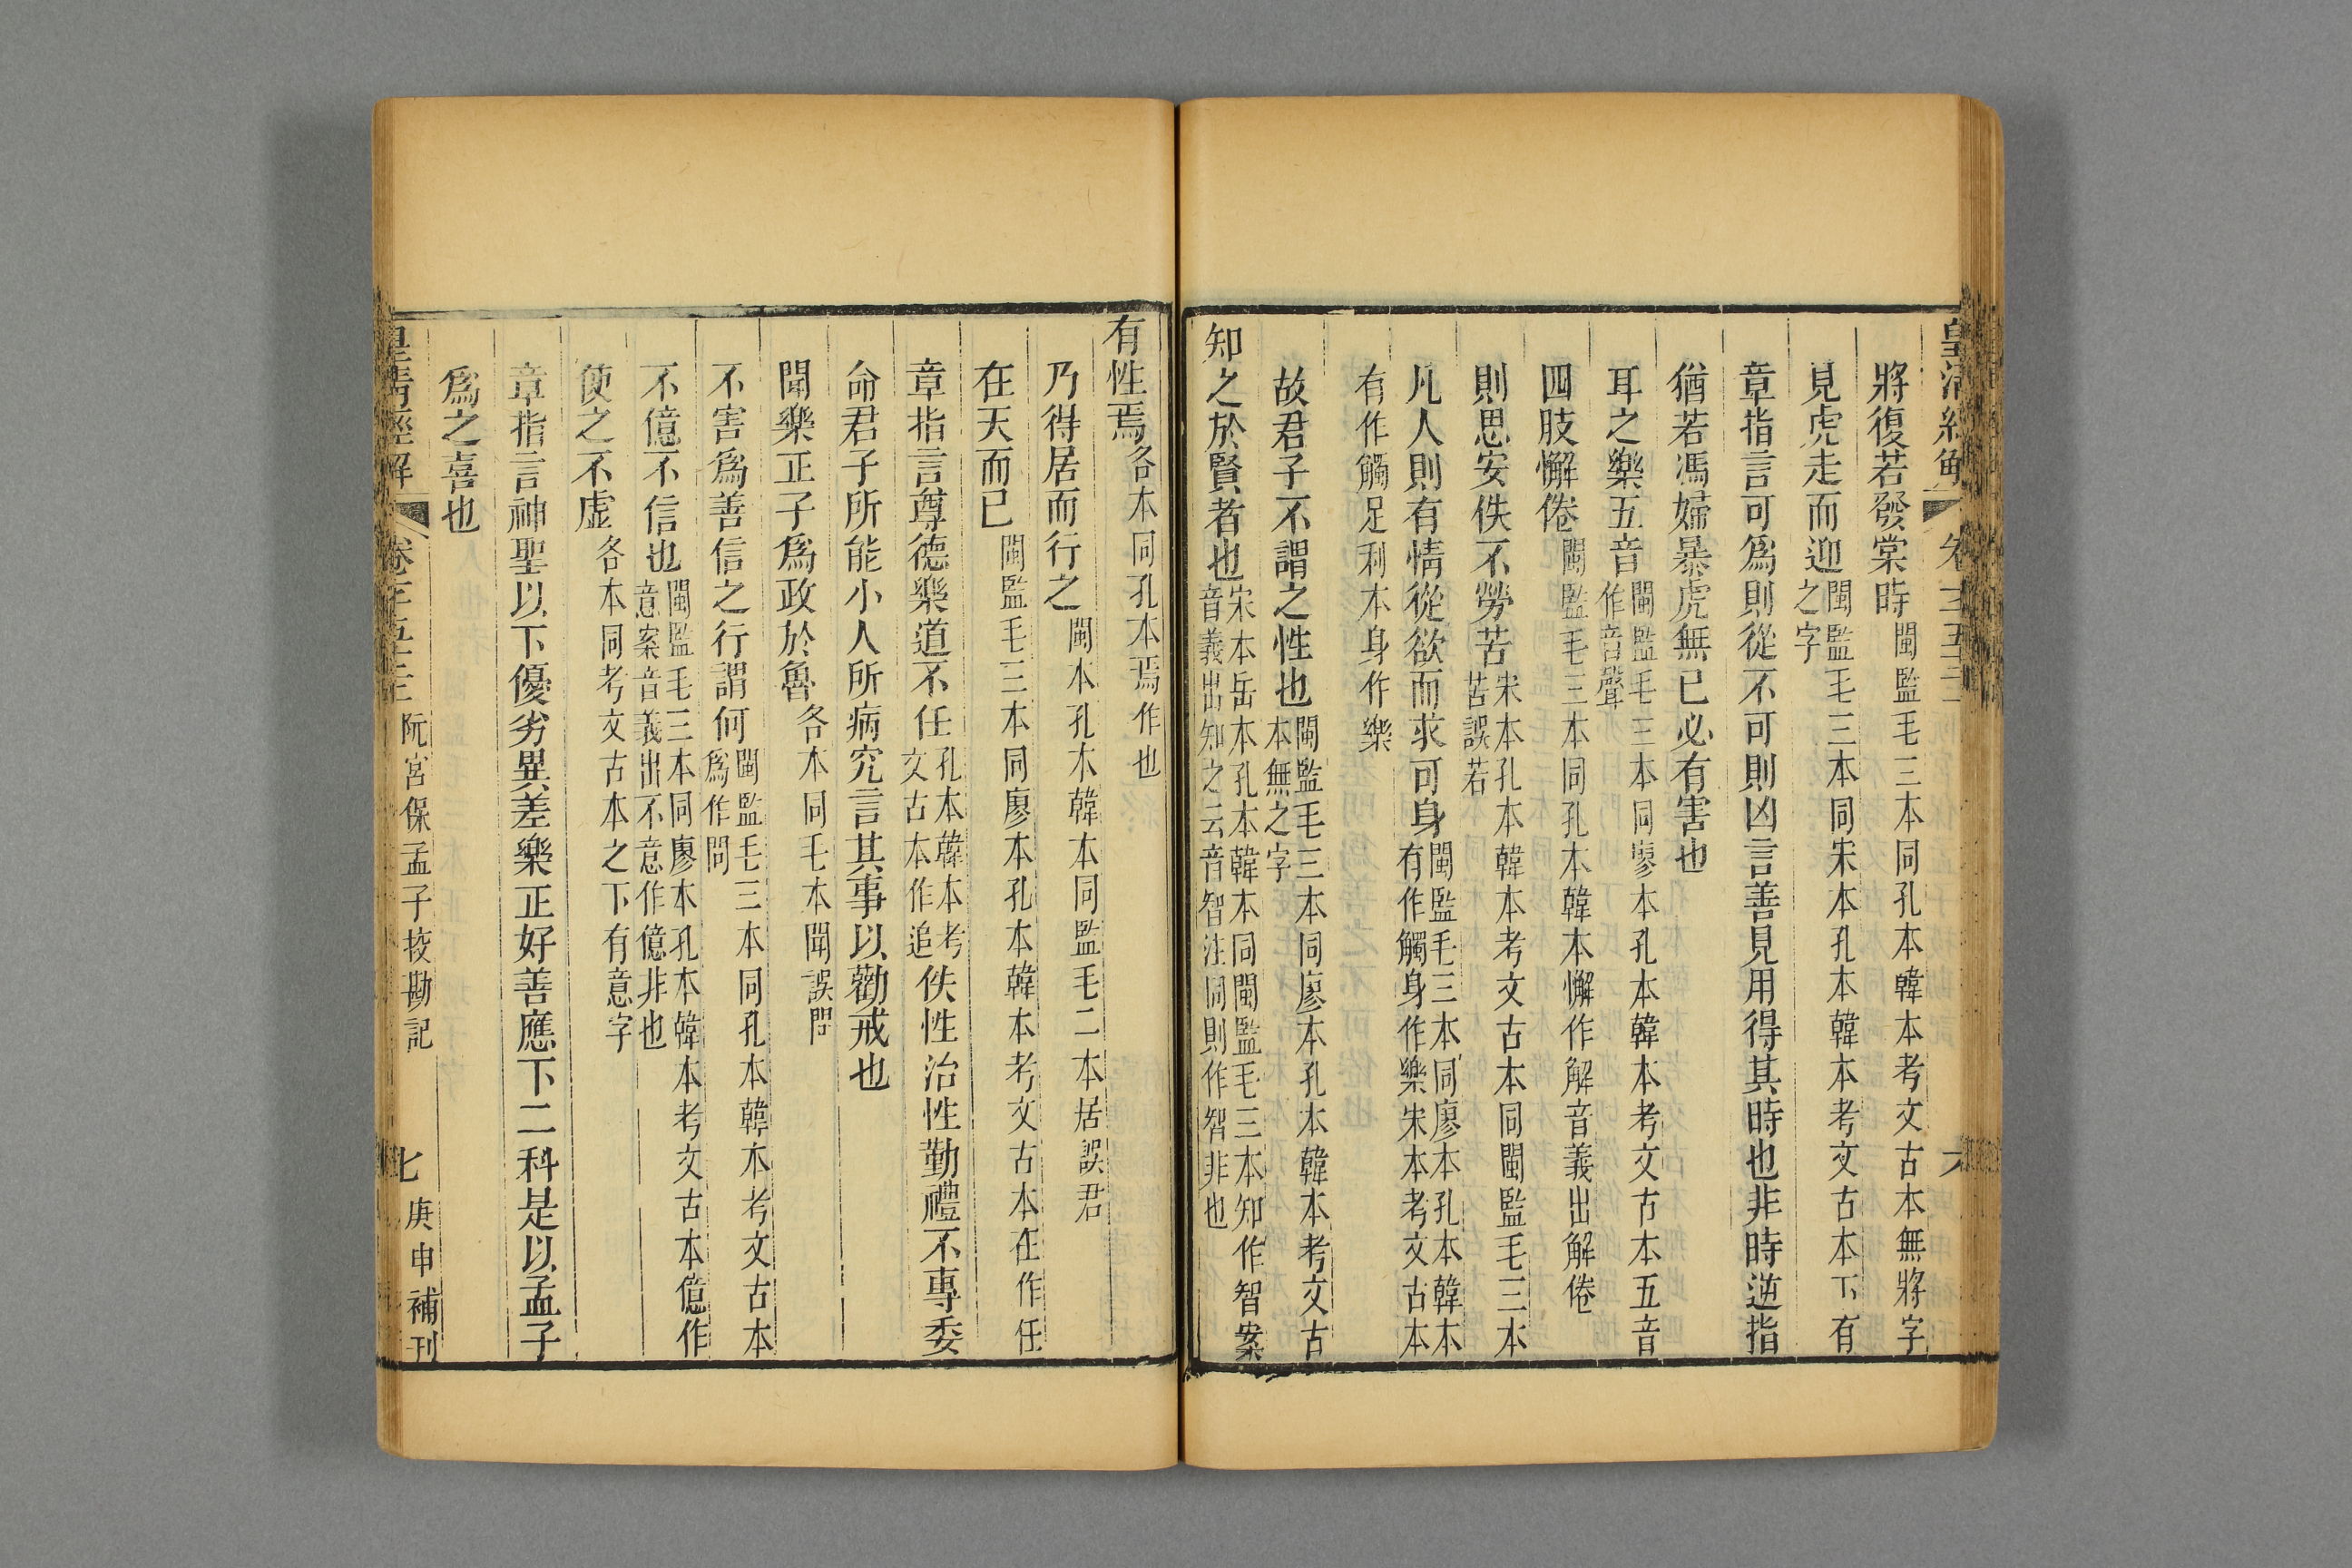 將復若發棠時閩監毛三本同孔本韓本考文古本無將字
見虎走而迎閩監毛三本同宋本孔本韓本考文古本下有之字
章指言可爲則從不可則凶言善見用得其時也非時逆指
猶若馮婦暴虎無已必有害也
耳之樂五音閩監毛三本同廖本孔本韓本考文古本五音作音聲
四肢懈倦閩監毛三本同孔本韓本懈作解音義出解倦
則思安佚不勞苦宋本孔本韓本考文古本同閩監毛三本苦誤若
凡人則有情從欲而求可身閩監毛三本同廖本孔本韓本有作觸身作樂宋本考文古本
有作觸足利本身作樂
故君子不謂之性也閩監毛三本同廖本孔本韓本考文古本無之字
知之於賢者也宋本岳本孔本韓本同閩監毛三本知作智案音義出知之云音智注同則作智非也
有性焉各本同孔本焉作也
乃得居而行之閩本孔本韓本同監毛二本居誤君
在天而已閩監毛三本同廖本孔本韓本考文古本在作任
章指言尊德樂道不任孔本韓本考文古本作追佚性治性勤禮不專委
命君子所能小人所病究言其事以勸戒也
聞樂正子爲政於魯各本同毛本聞誤問
不害爲善信之行謂何閩監毛三本同孔本韓本考文古本爲作問
不億不信也閩監毛三本同廖本孔本韓本考文古本億作意案音義出不意作億非也
使之不虛各本同考文古本之下有意字
章指言神聖以下優劣異差樂正好善應下二科是以孟子
爲之喜也
皇清經解 阮宮保孟子挍勘記 七 庚申補刊